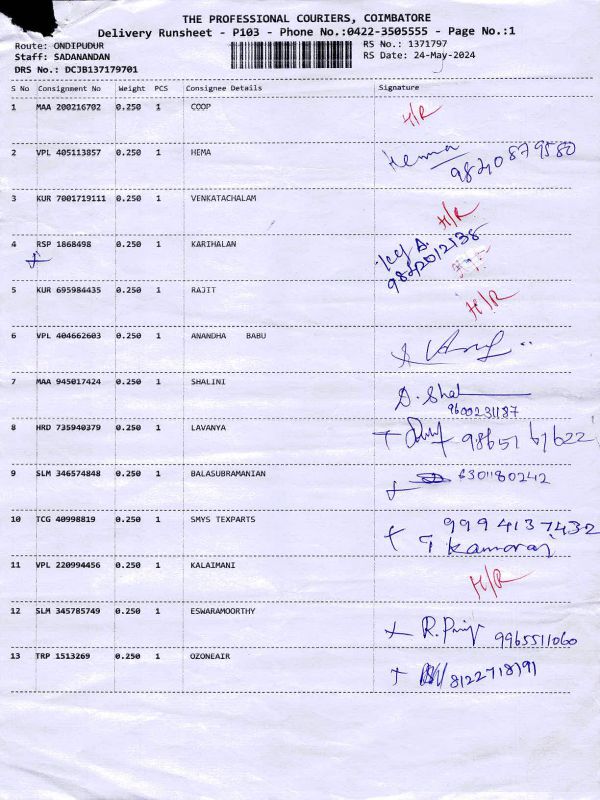 THE PROFESSIONAL COURIERS, COIMBATORE
Delivery Runsheet - P103 - Phone No.:0422-3505555 - Page No.:1
Route: ONDIPUDUR RS No.: 1371797
Staff: SADANANDAN RS Date: 24-May-2024
DRS No.: DCJB137179701
S No Consignment No Weight PCS Consignee Details Signature
1 MAA 200216702 0.250 1 COOP H/R
2 VPL 405113857 0.250 1 HEMA Hema
3 KUR 7001719111 0.250 1 VENKATACHALAM H/R
4 RSP 1868498 0.250 1 KARIHALAN
9842012138
5 KUR 695984435 0.250 1 RAJIT H/R
6 VPL 404662603 0.250 1 ANANDHA BABU
7 MAA 945017424 0.250 1 SHALINI
9600231187
8 HRD 735940379 0.250 1 LAVANYA
9 SLM 346574848 0.250 1 BALASUBRAMANIAN 6301180242
10 TCG 40998819 0.250 1 SMYS TEXPARTS 9994137432
11 VPL 220994456 0.250 1 KALAIMANI H/R
12 SLM 345785749 0.250 1 ESWARAMOORTHY 9965511060
13 TRP 1513269 0.250 1 OZONEAIR